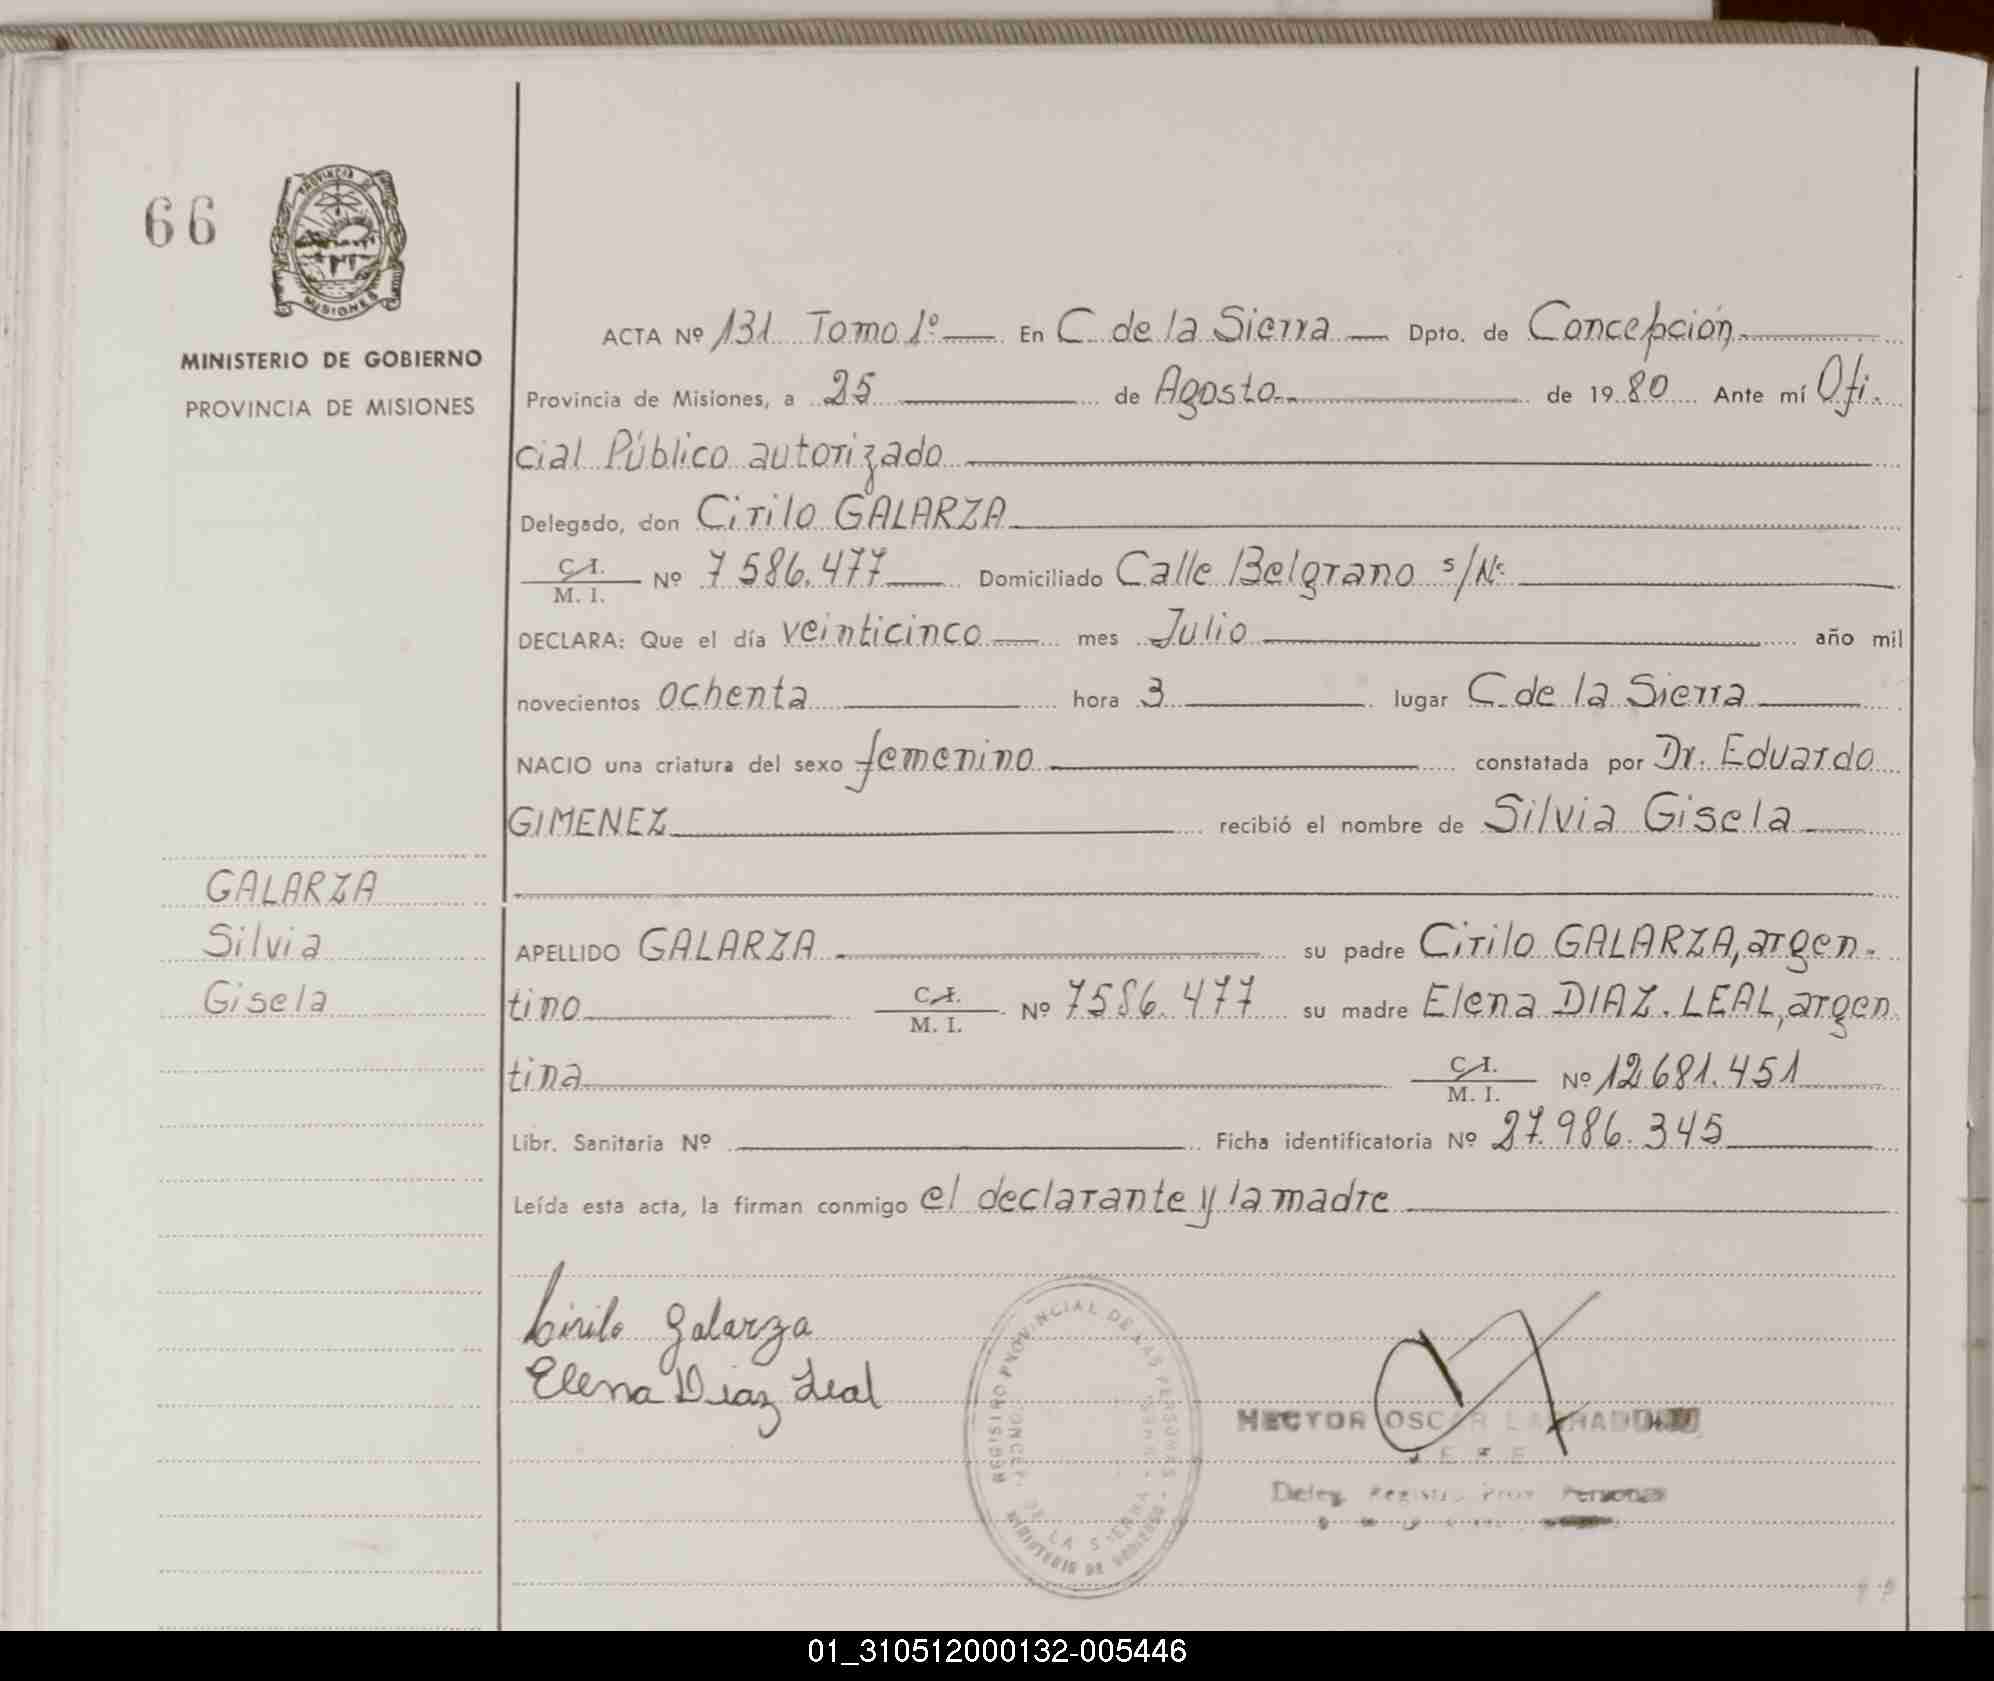 66
PROVINCIA DE
MISIONES
MINISTERIO DE GOBIERNO
PROVINCIA DE MISIONES
ACTA Nº 131 Tomo 1º En C. de la Sierra Dpto. de Concepción
Provincia de Misiones, a 25 de Agosto de 1980 Ante mí Ofi-
cial Público autorizado
Delegado, don Cirilo GALARZA
C. I.
M. I. Nº 7586.477 Domiciliado Calle Belgrano s/Nº
DECLARA: Que el día veinticinco mes Julio año mil
novecientos ochenta hora 3 lugar C. de la Sierra
NACIO una criatura del sexo femenino constatada por Dr. Eduardo
GIMENEZ recibió el nombre de Silvia Gisela
GALARZA
Silvia
Gisela
APELLIDO GALARZA su padre Cirilo GALARZA, argen-
tino C. I.
M. I. Nº 7586.477 su madre Elena DIAZ LEAL, argen
tina C. I.
M. I. Nº 12681.451
Libr. Sanitaria Nº Ficha identificatoria Nº 27.986.345
Leída esta acta, la firman conmigo el declarante y la madre
Cirilo Galarza
Elena Diaz Leal
REGISTRO PROVINCIAL DE LAS PERSONAS
DE LA SIERRA
MINISTERIO DE GOBIERNO
HECTOR OSCAR
Deleg. Registro Prov. Personas
01_310512000132-005446